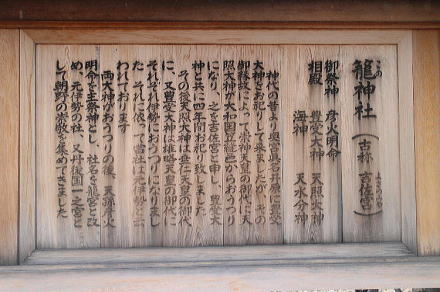 籠神社(古称 吉佐宮)
御祭神 彦火明命
相殿 豊受大神 天照大神
海神 天水分神
神代の昔より奥宮眞名井原に豊受
大神をお祀りして来ましたが、その
御縁故によって崇神天皇の御代に天
照大神が大和国笠縫邑からおうつり
になり、之を吉佐宮と申し、豊受大
神と共に四年間お祀り致しました
その後天照大神は垂仁天皇の御代
に、又豊受大神は雄略天皇の御代に
それぞれ伊勢におうつりになりまし
た、それに依って当社は元伊勢と云
われております
両大神がおうつりの後、天孫彦火
明命を主祭神とし、社名を籠宮と改
め、元伊勢の社、又丹後国一之宮と
して朝野の崇敬を集めてきました